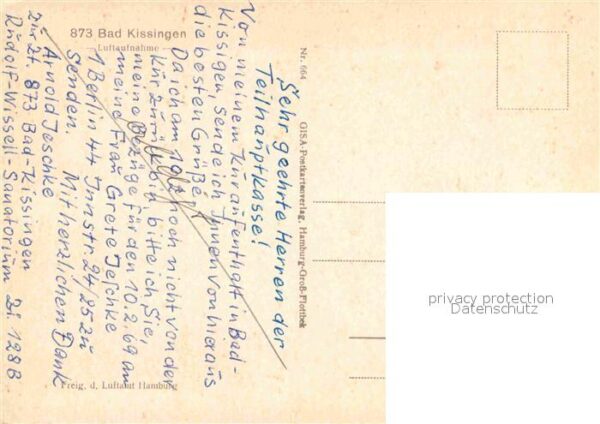 873 Bad Kissingen
Luftaufnahme
Sehr geehrte Herren der
Teilhauptkasse!
Von meinem Kuraufenthalt in Bad-
Kissigen sende ich Ihnen von hieraus
die besten Grüße.
Da ich am 10.2. noch nicht von der
Kur zurück bin, bitte ich Sie,
meine Bezüge für den 10.2.69 an
meine Frau Grete Jeschke
1 Berlin 44 Innstr. 24/25 zu
senden. Mit herzlichen Dank
Arnold Jeschke
zur Zt. 873 Bad-Kissingen
Rudolf-Wissell-Sanatorium Zi. 128B
Nr. 664 GISA-Postkartenverlag, Hamburg-Groß-Flottbek
Freig. d. Luftamt Hamburg
privacy protection
Datenschutz